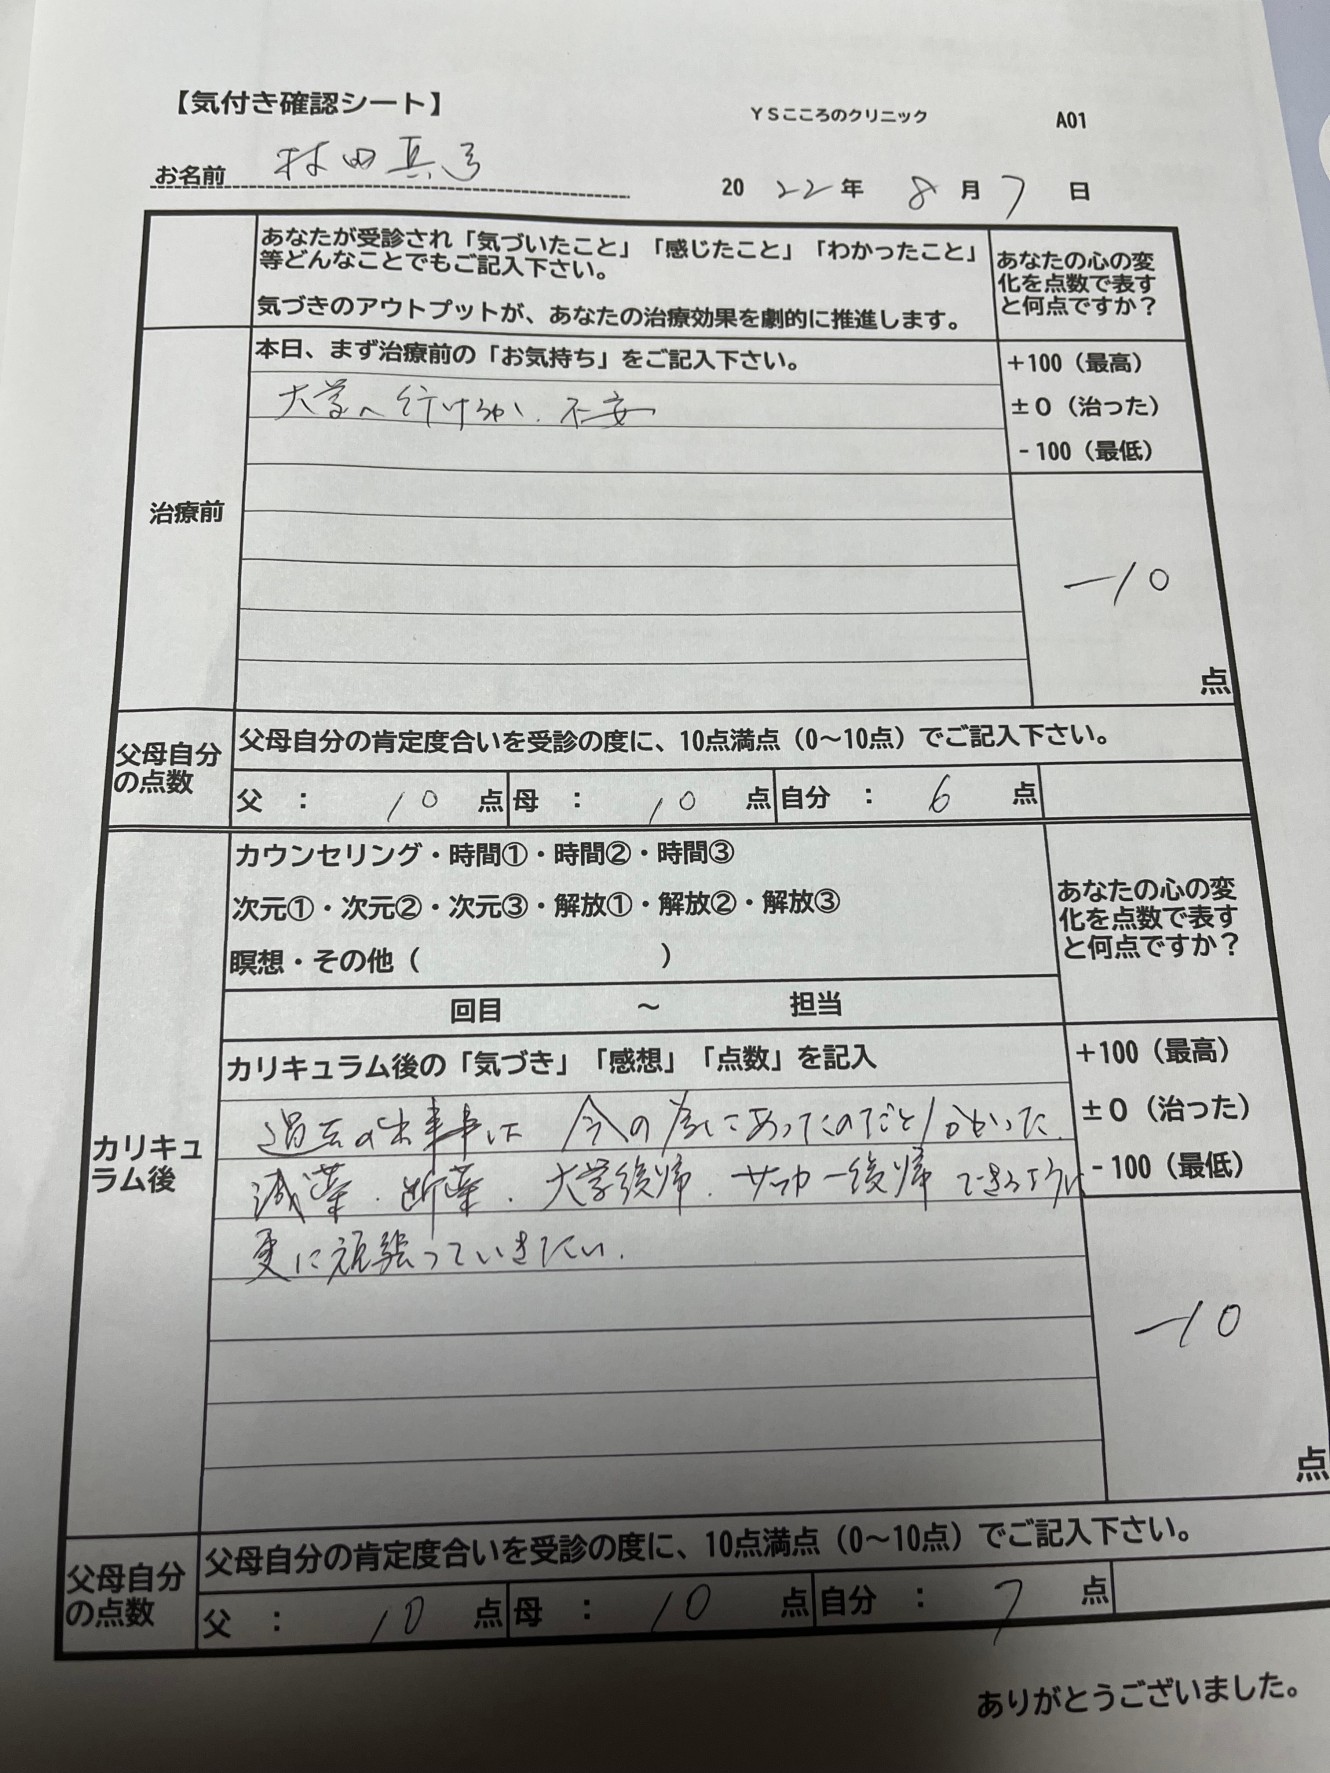 【気付き確認シート】
YSこころのクリニック
A01
お名前 村田真弓
2022年8月7日
あなたが受診され「気づいたこと」「感じたこと」「わかったこと」
等どんなことでもご記入下さい。
気づきのアウトプットが、あなたの治療効果を劇的に推進します。
あなたの心の変
化を点数で表す
と何点ですか?
治療前
本日、まず治療前の「お気持ち」をご記入下さい。
大学へ行けるか、不安
+100(最高)
±0(治った)
-100(最低)
-10
点
父母自分
の点数
父母自分の肯定度合いを受診の度に、10点満点(0〜10点)でご記入下さい。
父 : 10 点 母 : 10 点 自分 : 6 点
カリキュ
ラム後
カウンセリング・時間①・時間②・時間③
次元①・次元②・次元③・解放①・解放②・解放③
瞑想・その他( )
回目 〜 担当
あなたの心の変
化を点数で表す
と何点ですか?
カリキュラム後の「気づき」「感想」「点数」を記入
過去の出来事は 今の為にあったのだと分かった.
減薬.断薬.大学復帰.サッカー復帰できるように
更に頑張っていきたい.
+100(最高)
±0(治った)
-100(最低)
-10
点
父母自分
の点数
父母自分の肯定度合いを受診の度に、10点満点(0〜10点)でご記入下さい。
父 : 10 点 母 : 10 点 自分 : 7 点
ありがとうございました。